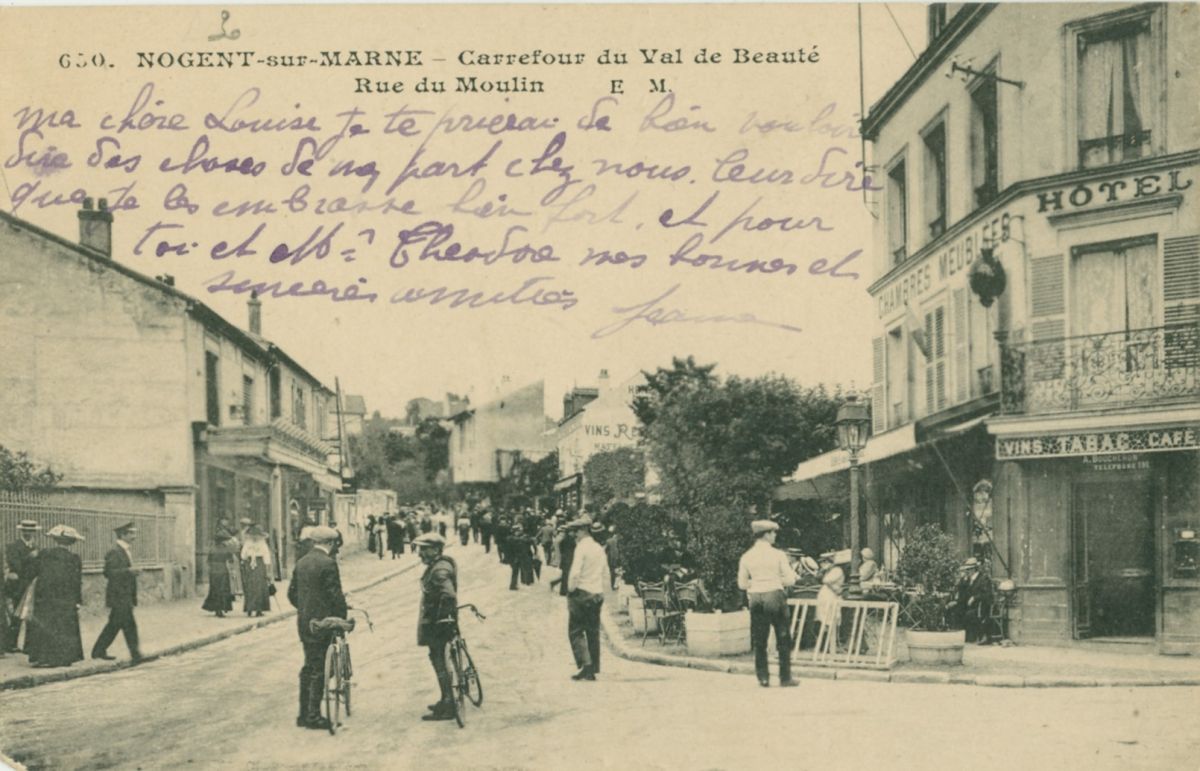 650. NOGENT-sur-MARNE – Carrefour du Val de Beauté
Rue du Moulin E M.
ma chère Louise je te prierai de bien vouloir
dire des choses de ma part chez nous. leur dire
que je les embrasse bien fort, et pour
toi et Mr Theodore mes bonnes et
sincères amitiés
Jeanne
HÔTEL
CHAMBRES MEUBLEES
VINS RE
VINS TABAC CAFÉ
A. BOUCHERON
TELEPHONE 191